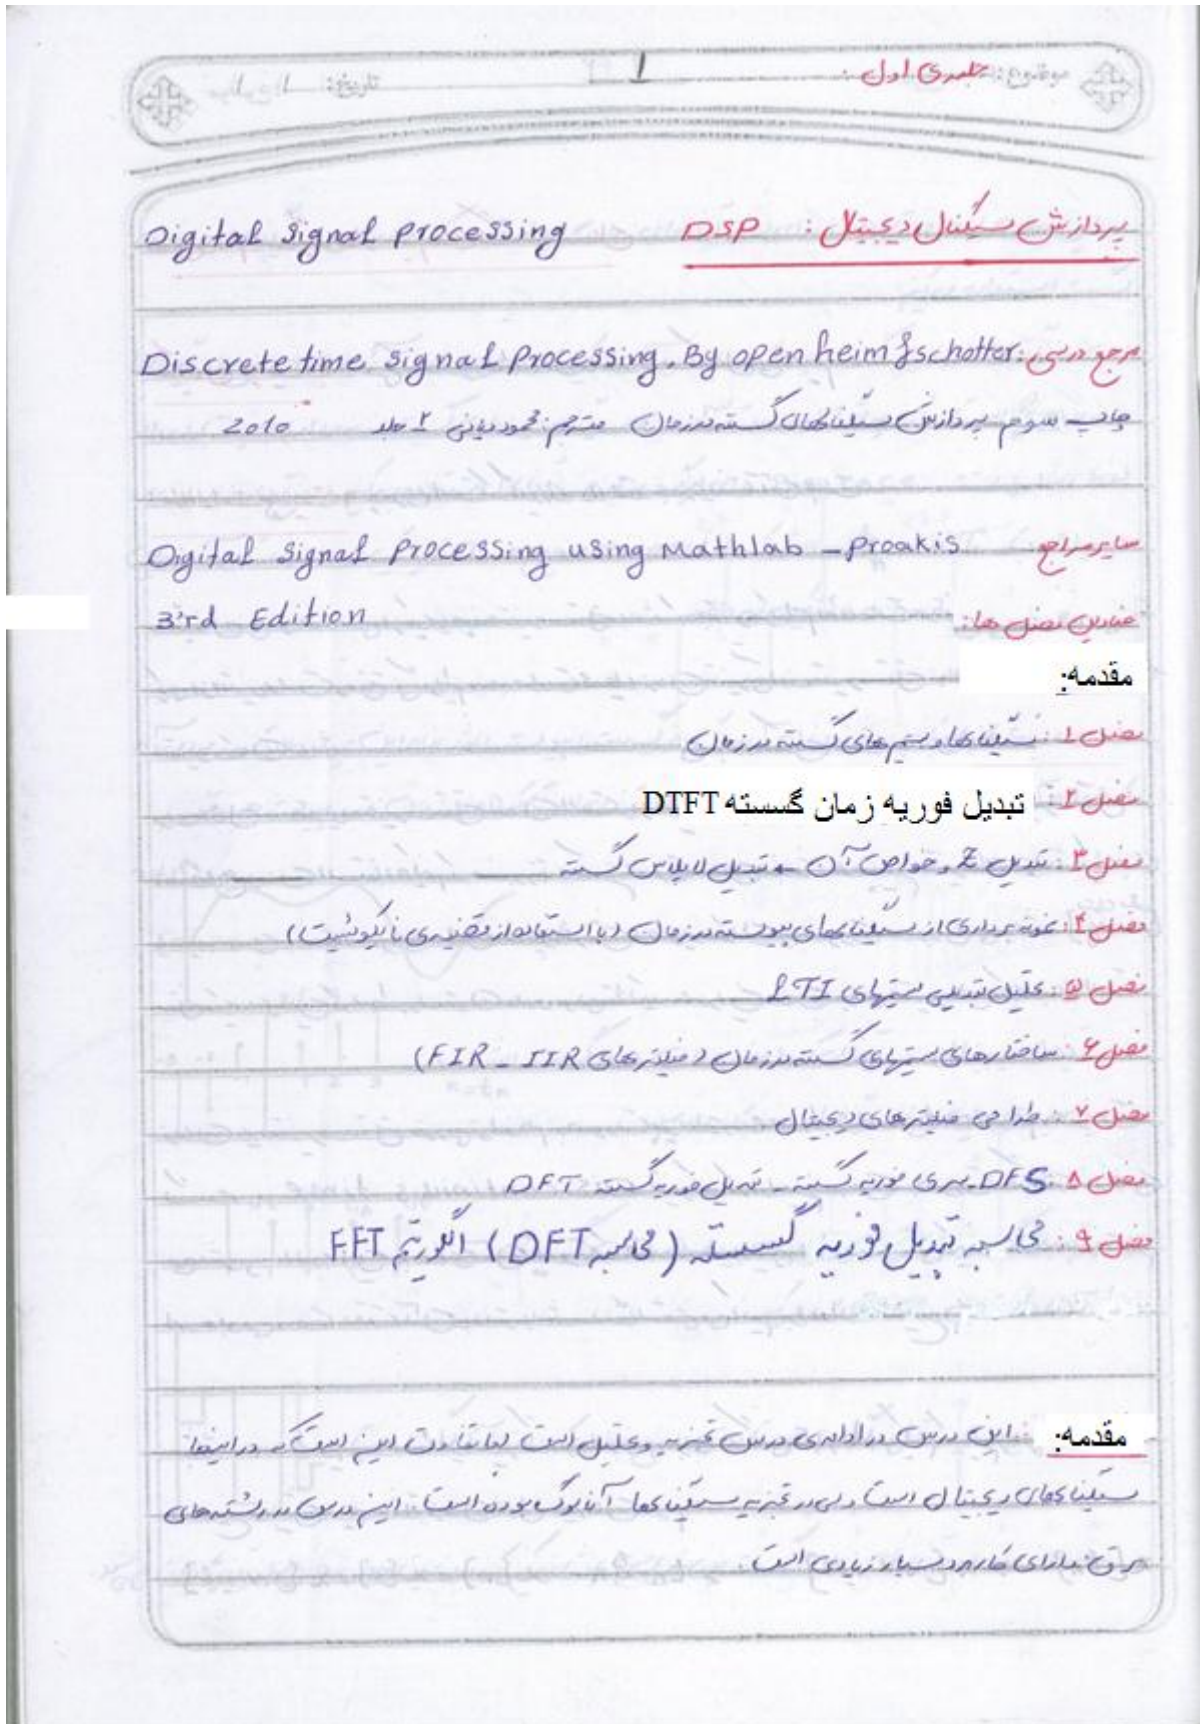 موضوع: جلسه‌ی اول 1 تاریخ: / /
پردازش سیگنال دیجیتال: DSP Digital Signal Processing
مرجع درسی: Discrete time signal Processing. By openheim & schotter
چاپ سوم پردازش سیگنالهای گسسته در زمان مترجم: محمود دیانی 2 جلد 2010
سایر مراجع Digital Signal Processing using Mathlab - proakis
3'rd Edition
عناوین فصل ها:
مقدمه:
فصل 1: سیگنالها و سیستم های گسسته در زمان
فصل 2: تبدیل فوریه زمان گسسته DTFT
فصل 3: تبدیل Z و خواص آن → تبدیل لاپلاس گسسته
فصل 4: نمونه برداری از سیگنالهای پیوسته در زمان (با استفاده از قضیه‌ی نایکوئیست)
فصل 5: تحلیل تبدیلی سیستمهای LTI
فصل 6: ساختارهای سیستمهای گسسته در زمان (فیلترهای FIR - IIR)
فصل 7: طراحی فیلترهای دیجیتال
فصل 8: DFS سری فوریه گسسته - تبدیل فوریه گسسته DFT
فصل 9: محاسبه تبدیل فوریه گسسته (محاسبه DFT) الگوریتم FFT
مقدمه: این درس در ادامه‌ی درس تجزیه و تحلیل است اما تفاوت این است که در اینجا
سیگنالهای دیجیتال است ولی در تجزیه سیگنالها آنالوگ بوده است. این درس در رشته‌های
برق دارای کاربرد بسیار زیادی است.